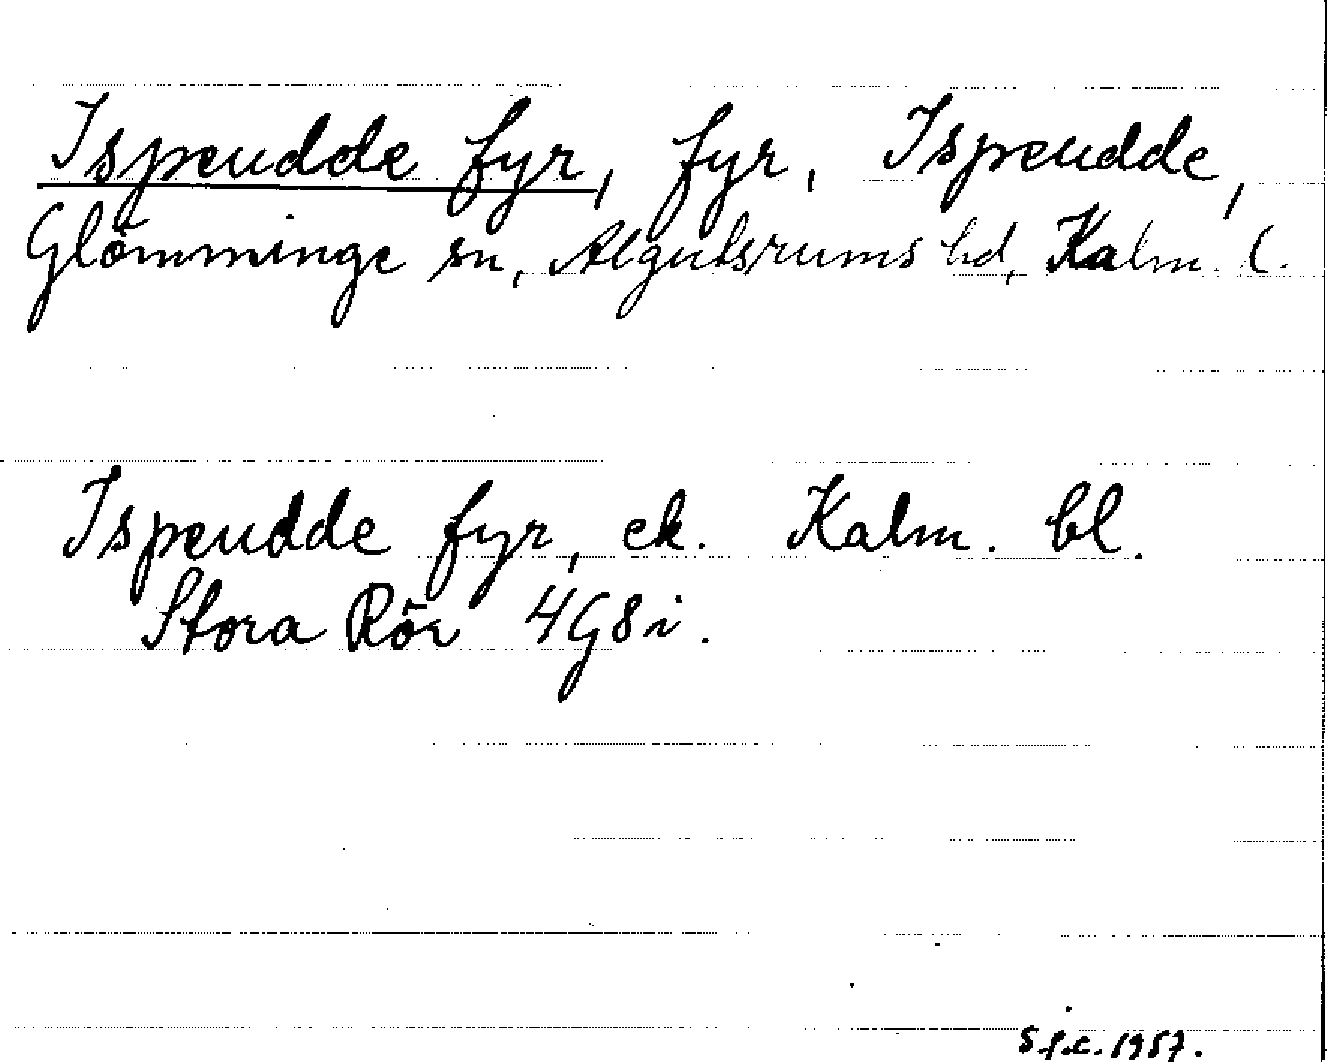 Ispeudde fyr, fyr, Ispeudde,
Glömminge sn, Algutsrums hd, Kalm. l.
Ispeudde fyr, ek. Kalm. bl.
Stora Rör 4G8i.
S.f.c. 1957.